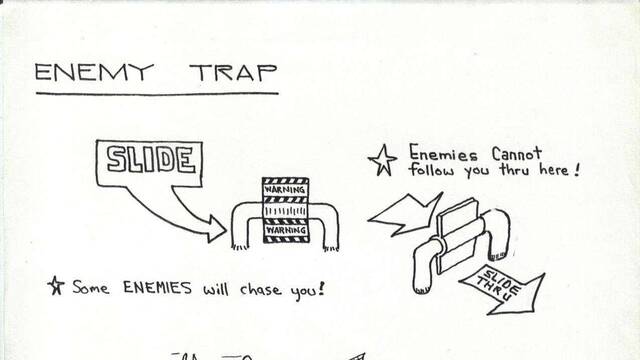 ENEMY TRAP
SLIDE
WARNING
WARNING
☆ Enemies Cannot
follow you thru here!
SLIDE
THRU
☆ Some ENEMIES will chase you!